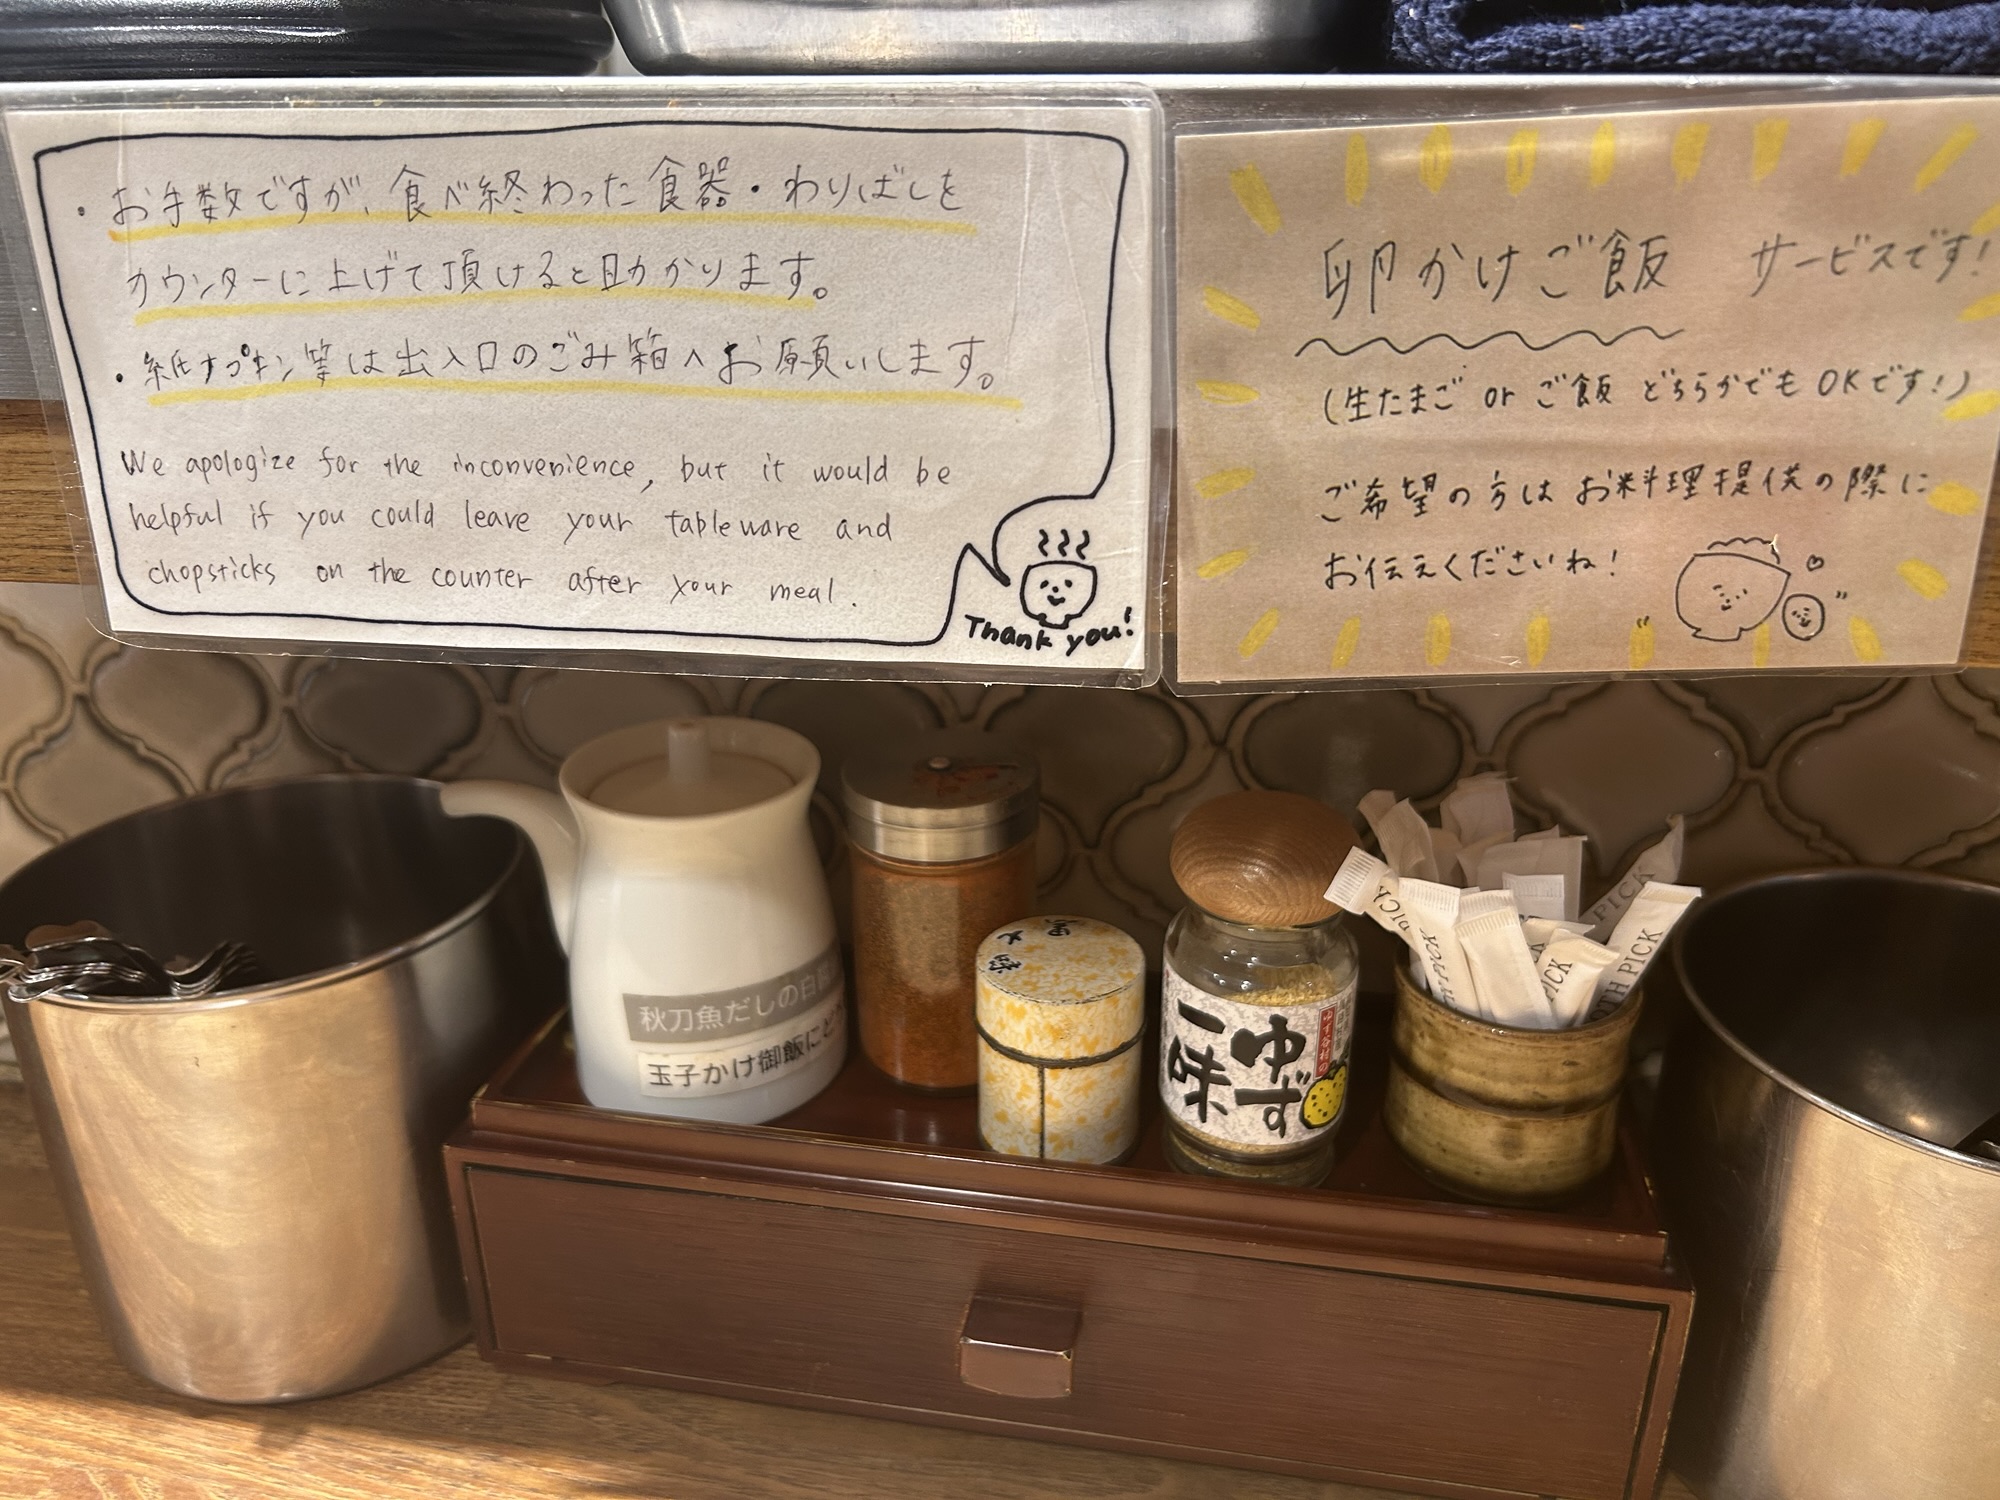 ・お手数ですが、食べ終わった食器・わりばしを
カウンターに上げて頂けると助かります。
・紙ナプキン等は出入口のごみ箱へお願いします。
We apologize for the inconvenience, but it would be
helpful if you could leave your tableware and
chopsticks on the counter after your meal.
Thank you!
卵かけご飯 サービスです!
(生たまご or ご飯 どちらかでも OKです!)
ご希望の方は お料理提供の際に
お伝えくださいね!
秋刀魚だしの
玉子かけ御飯に
黒七味
ゆず
一味
TOOTH PICK
PICK
PICK
PICK